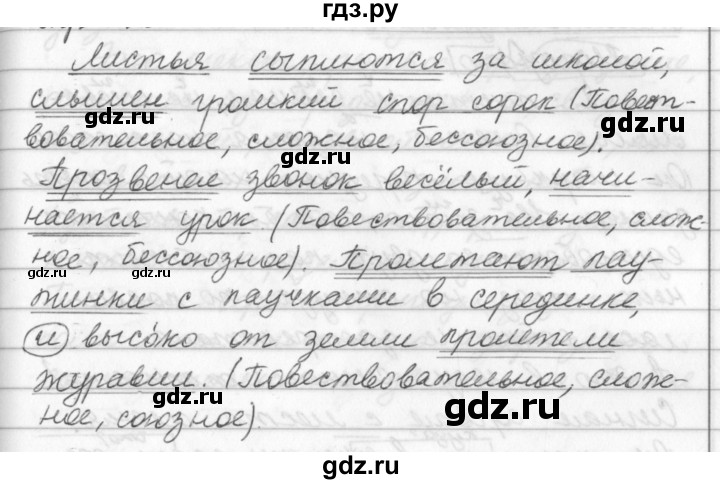 гдз.ру
Листья сыплются за школой,
слышен громкий спор сорок (Повест-
gdz.ru gdz.ru
вовательное, сложное, бессоюзное).
gdz.ru
Прозвенел звонок весёлый, начи-
нается урок (Повествовательное, слож-
ное, бессоюзное). Пролетают пау-
gdz.ru gdz.ru gdz.ru
тинки с паучками в серединке,
и высоко от земли пролетели
gdz.ru
журавли. (Повествовательное, слож-
gdz.ru
ное, союзное).
gdz.ru